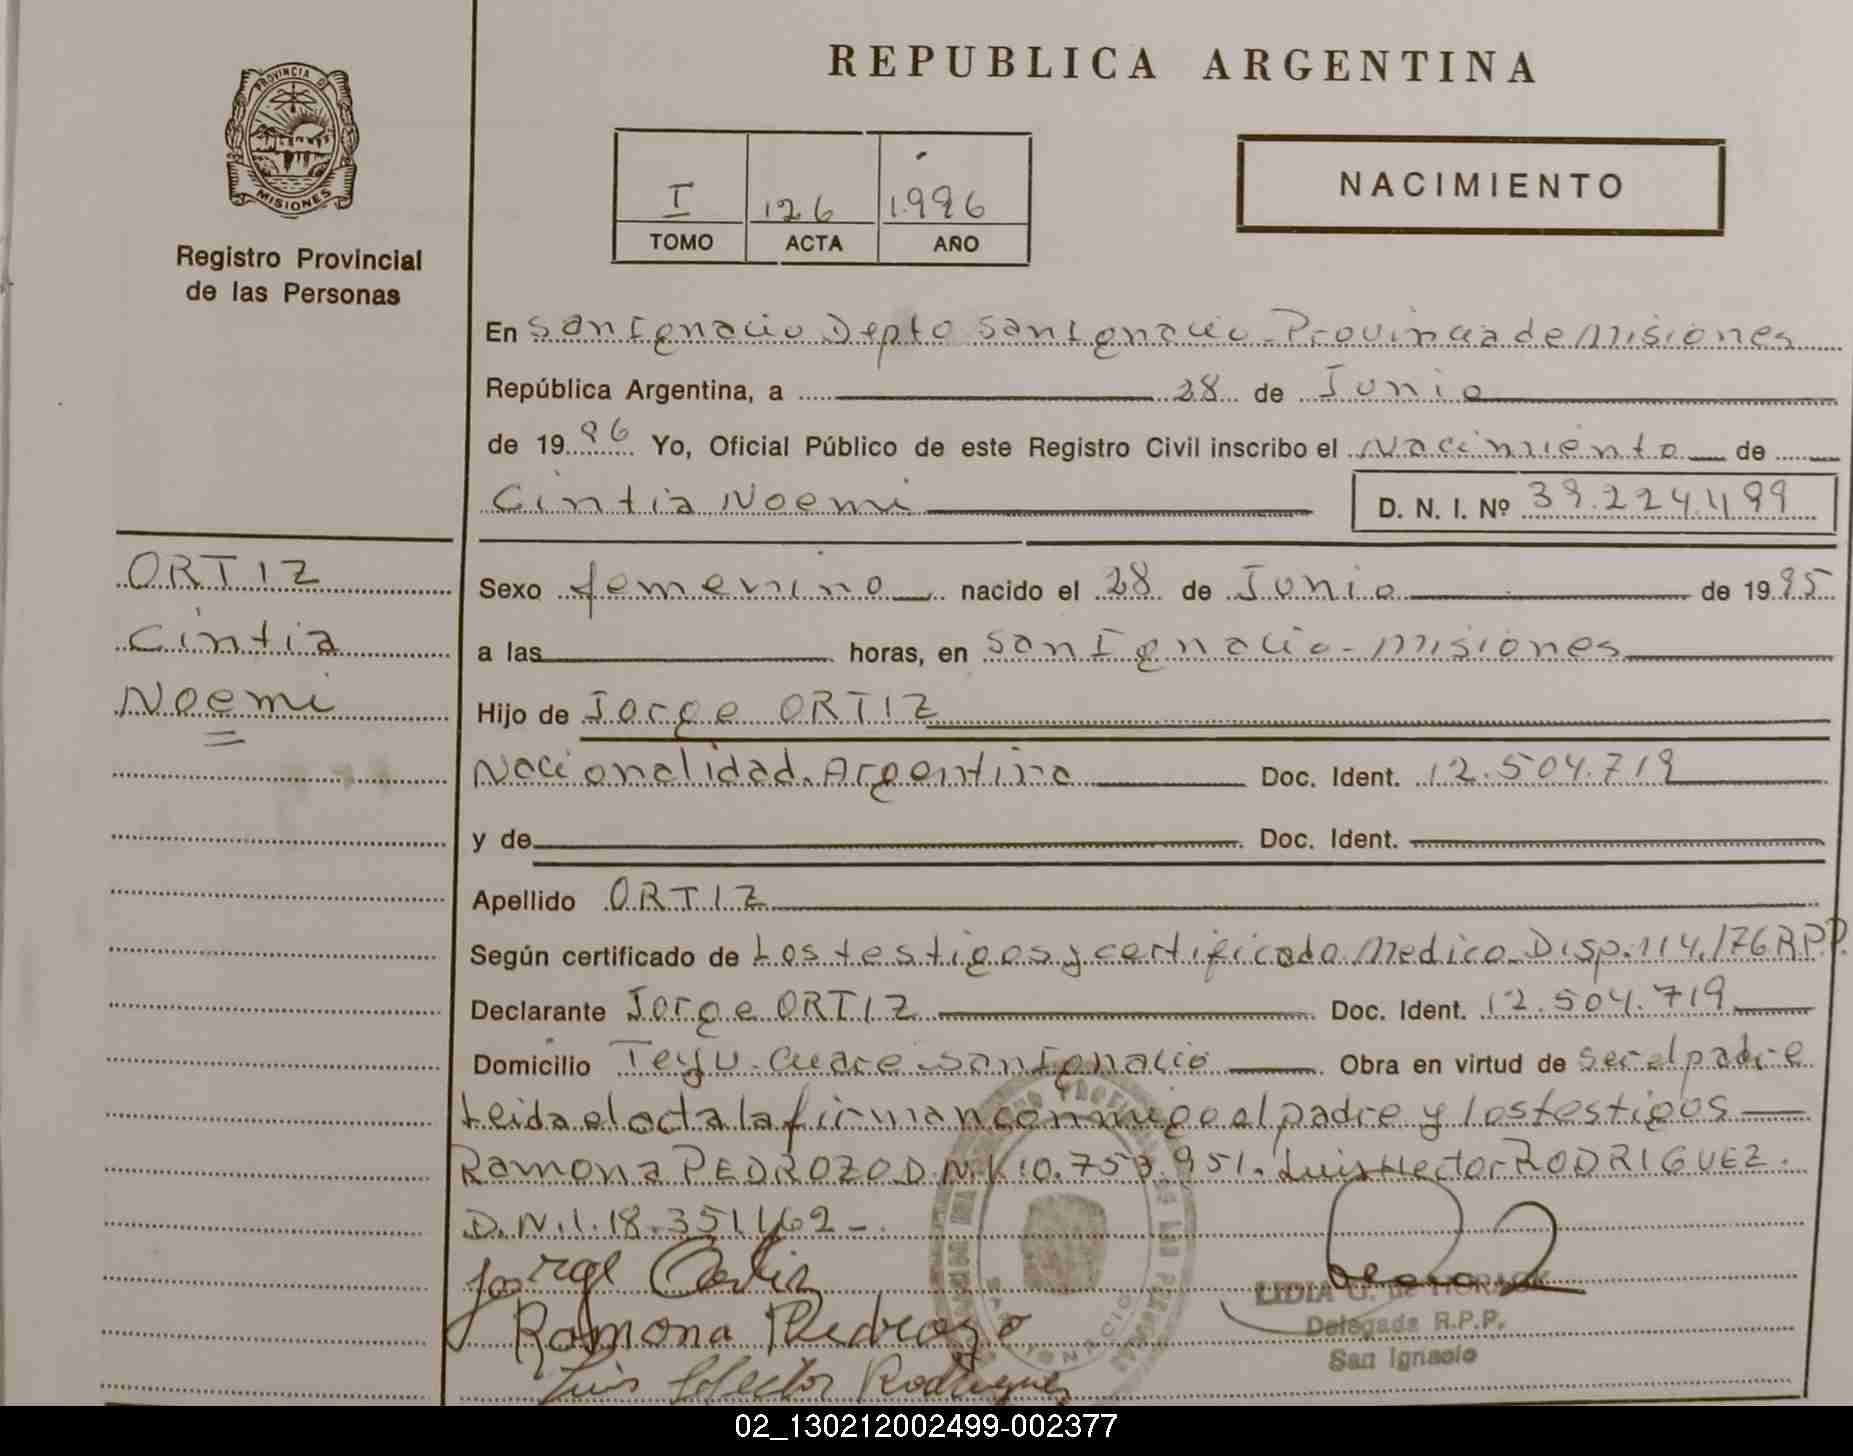 REPUBLICA ARGENTINA
PROVINCIA DE
MISIONES
Registro Provincial
de las Personas
I 126 1.996
TOMO ACTA AÑO
NACIMIENTO
En San Ignacio Depto San Ignacio - Provincia de Misiones
República Argentina, a 28 de Junio
de 19 96 Yo, Oficial Público de este Registro Civil inscribo el Nacimiento de
Cintia Noemi D. N. I. Nº 39.224.499
ORTIZ
Cintia
Noemi
Sexo femenino nacido el 28 de Junio de 19 95
a las horas, en San Ignacio - Misiones
Hijo de Jorge ORTIZ
Nacionalidad Argentina Doc. Ident. 12.504.719
y de Doc. Ident.
Apellido ORTIZ
Según certificado de Los testigos y certificado Medico Disp. 114/76 R.P.P.
Declarante Jorge ORTIZ Doc. Ident. 12.504.719
Domicilio Teyu-Cuare San Ignacio Obra en virtud de ser el padre
Leida el acta la firman conmigo el padre y los testigos
Ramona PEDROZO D.N.I. 10.753.951. Luis Hector RODRIGUEZ.
D.N.I. 18.351.162 -.
Jorge Ortiz
Ramona Pedrozo
Luis Hector Rodriguez
LIDIA G. de HORACK
Delegada R.P.P.
San Ignacio
02_130212002499-002377